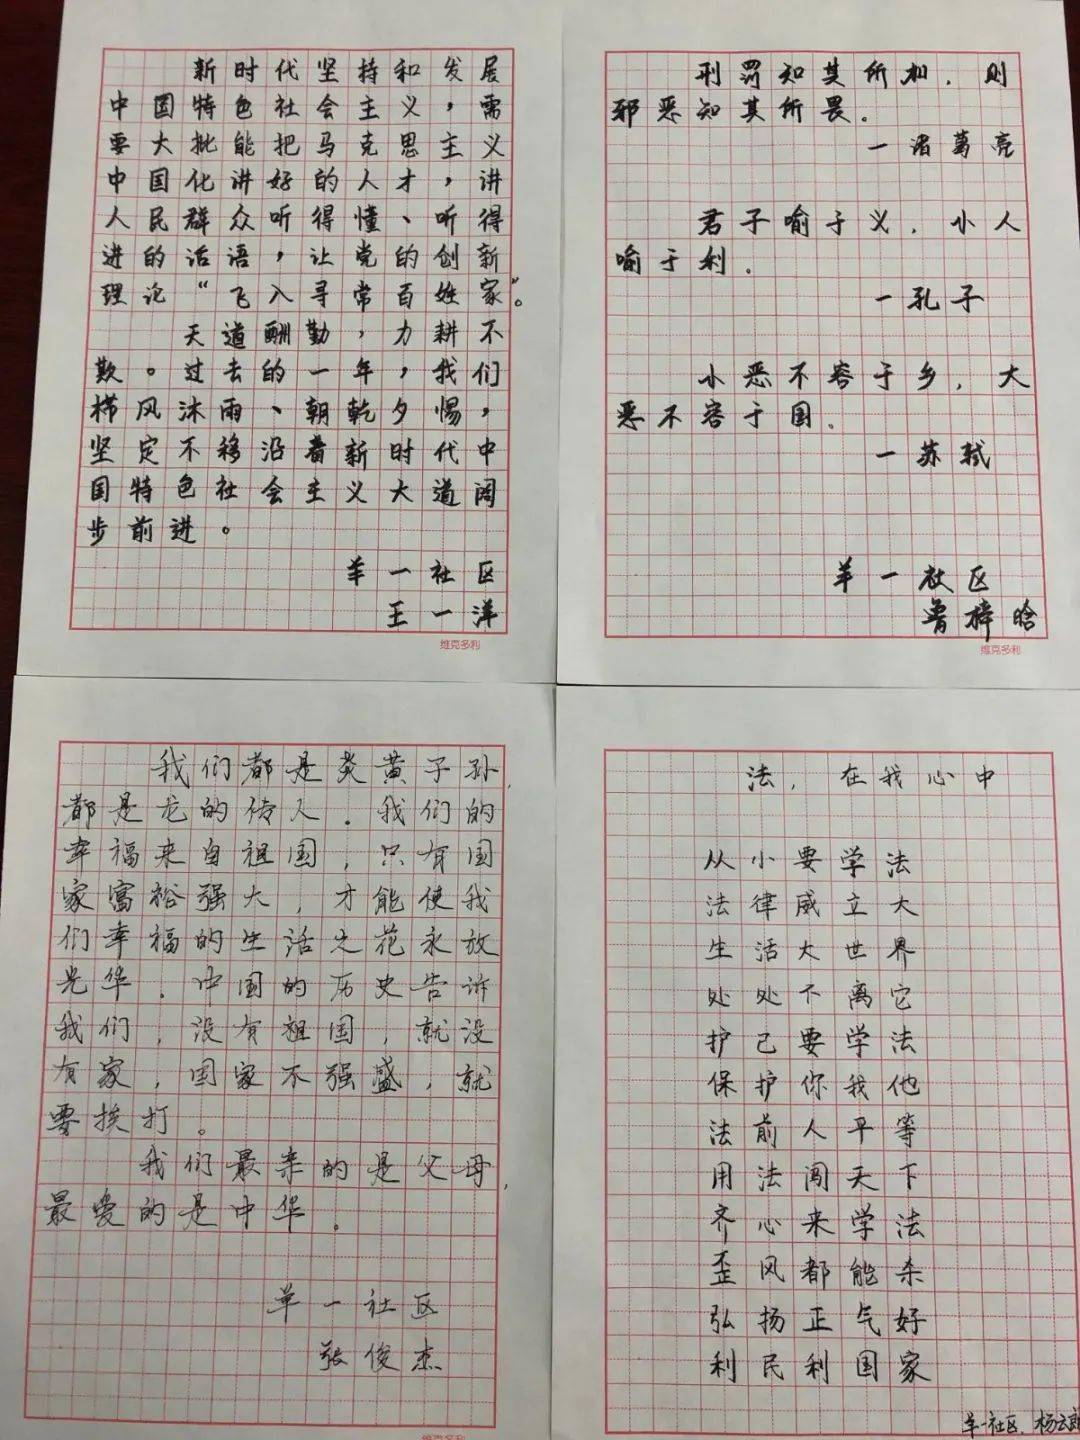 新时代坚持和发展
中国特色社会主义，需
要大批能把马克思主义
中国化讲好的人才，讲
人民群众听得懂、听得
进的话语，让党的创新
理论“飞入寻常百姓家”。
天道酬勤，力耕不
欺。过去的一年，我们
栉风沐雨、朝乾夕惕，
坚定不移沿着新时代中
国特色社会主义大道阔
步前进。
羊一社区
王一洋
维克多利
刑罚知其所加，则
邪恶知其所畏。
一诸葛亮
君子喻于义，小人
喻于利．
一孔子
小恶不容于乡，大
恶不容于国．
一苏轼
羊一社区
鲁梓晗
维克多利
我们都是炎黄子孙，
都是龙的传人．我们的
幸福来自祖国，只有国
家富裕强大，才能使我
们幸福的生活之花永放
光华．中国的历史告诉
我们，没有祖国，就没
有家，国家不强盛，就
要挨打。
我们最亲的是父母，
最爱的是中华．
羊一社区
张俊杰
维克多利
法，在我心中
从小要学法
法律威立大
生活大世界
处处下离它
护己要学法
保护你我他
法前人平等
用法闯天下
齐心来学法
歪风都能杀
弘扬正气好
利民利国家
羊一社区．杨云郎